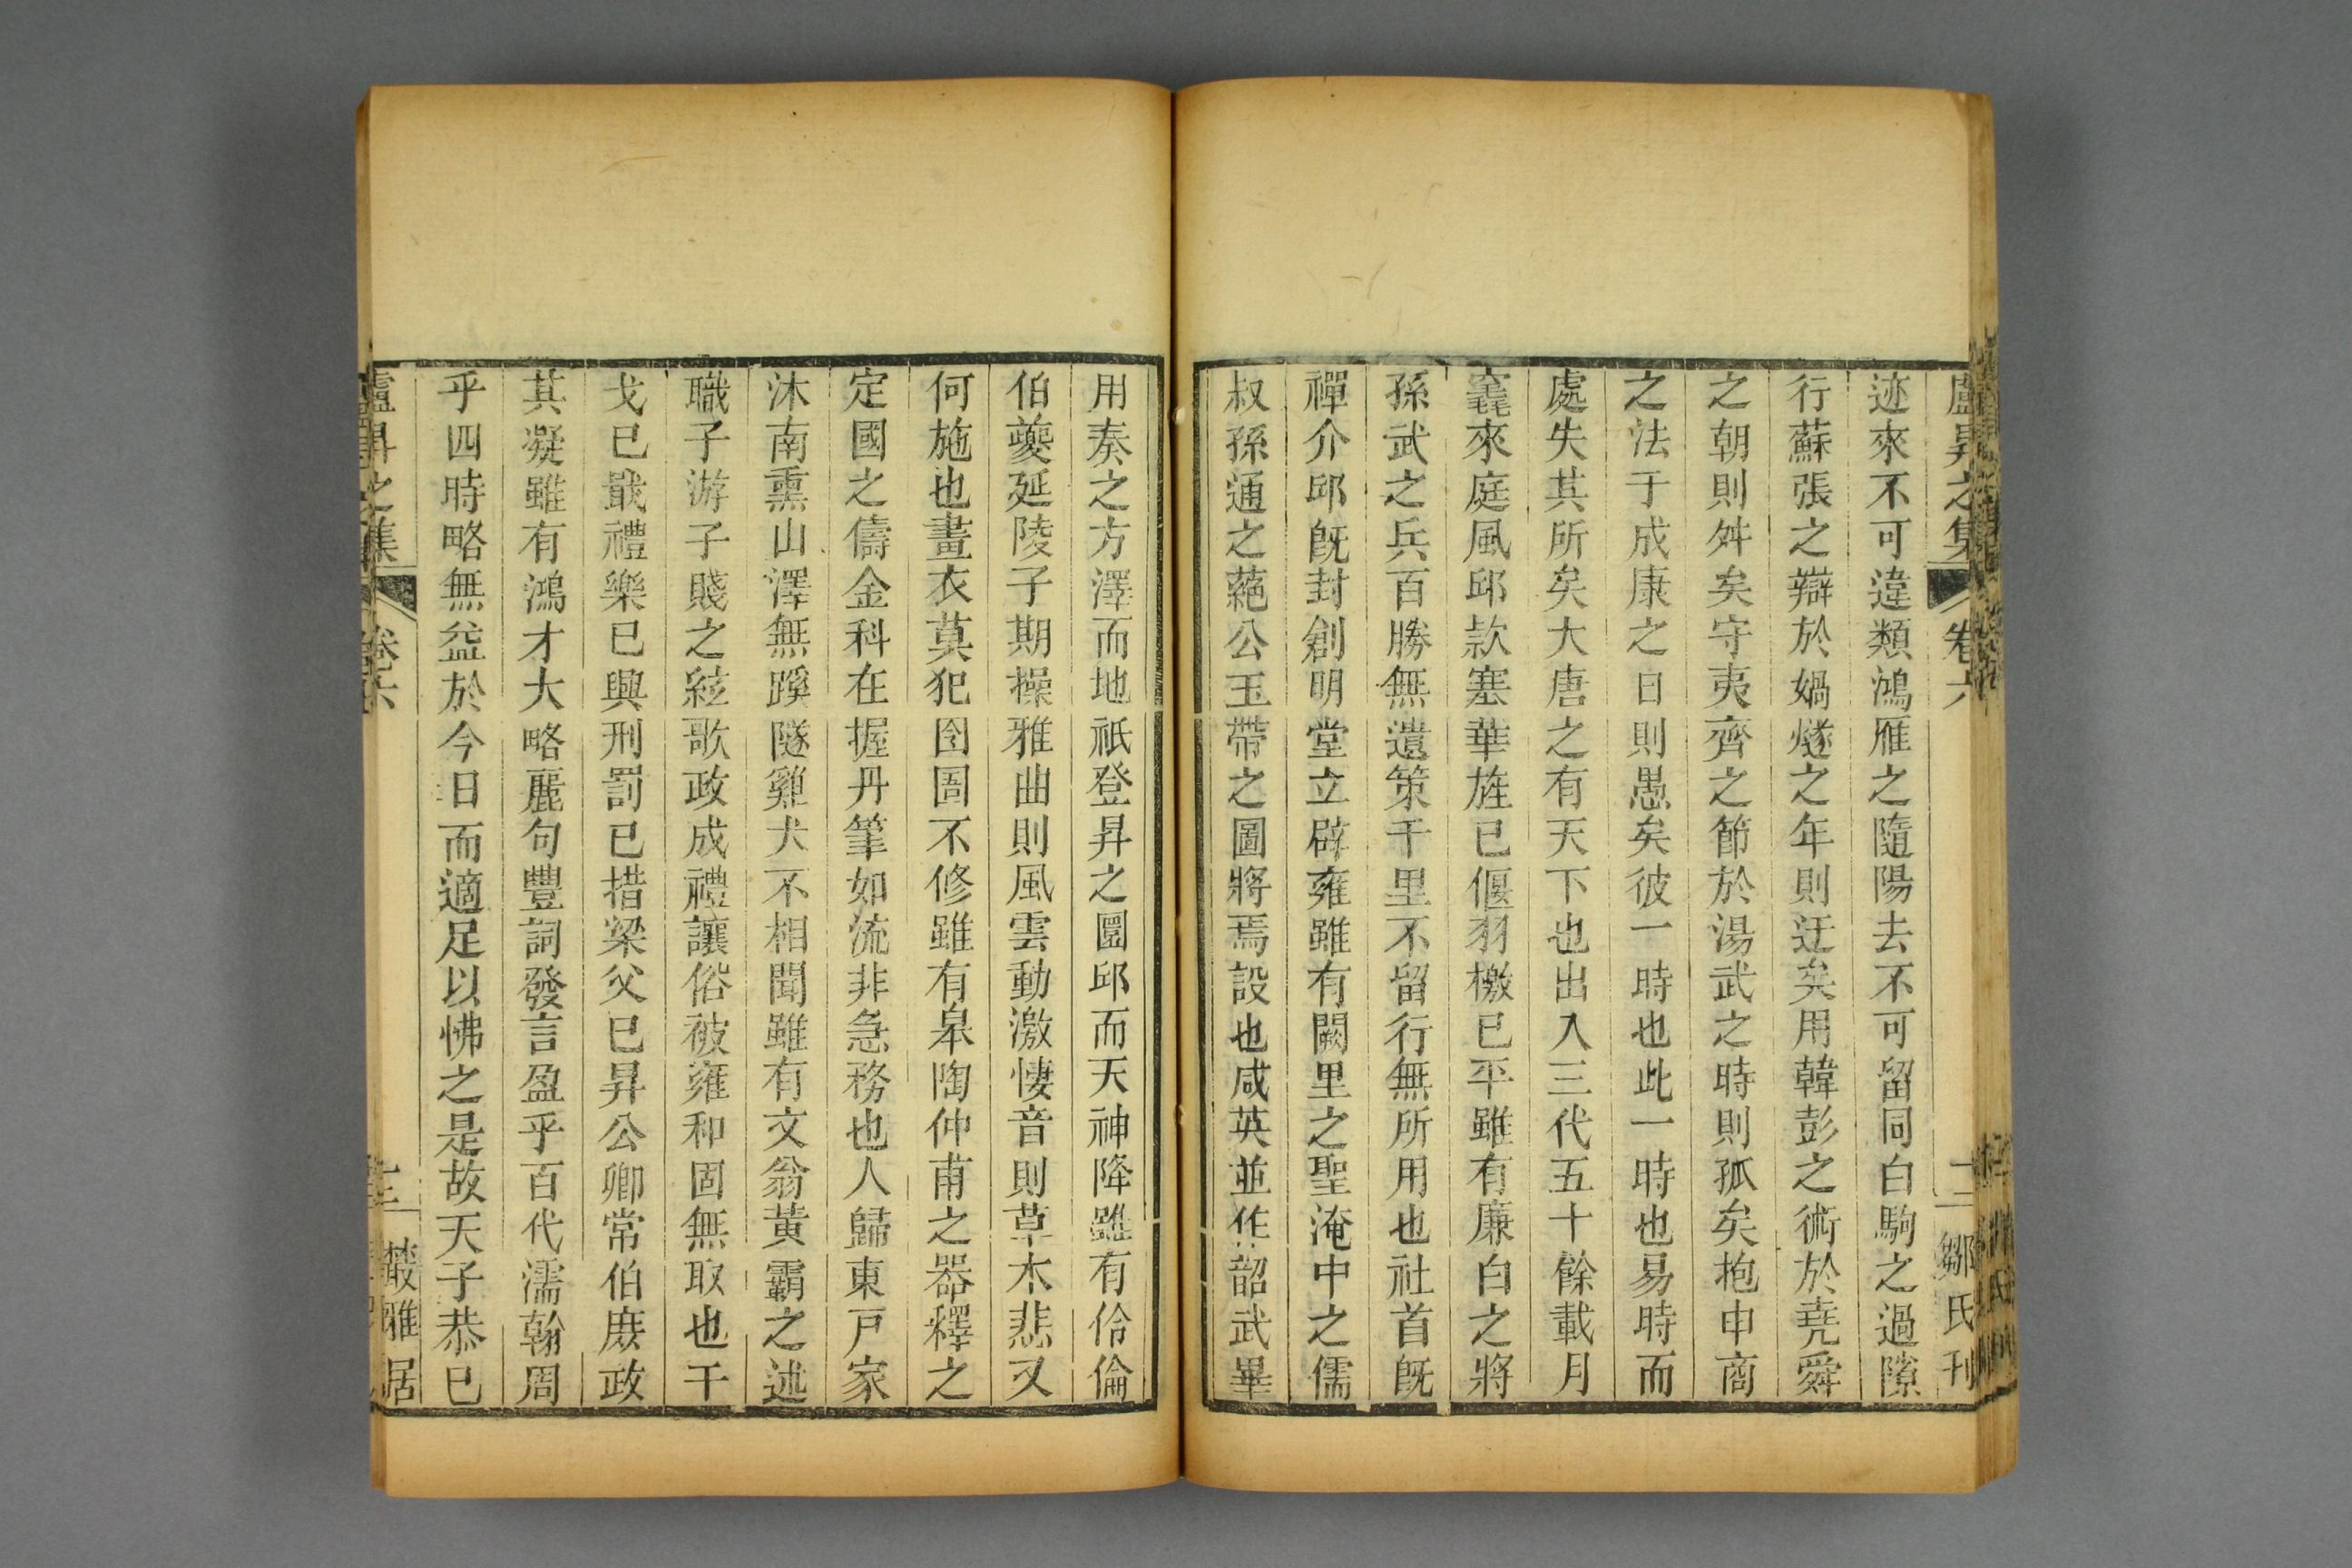 盧昇之集 卷六 十二 鄒氏刊
迹來不可違類鴻雁之隨陽去不可留同白駒之過隙
行蘇張之辯於媧燧之年則迂矣用韓彭之術於堯舜
之朝則舛矣守夷齊之節於湯武之時則孤矣抱申商
之法于成康之日則愚矣彼一時也此一時也易時而
處失其所矣大唐之有天下也出入三代五十餘載月
竁來庭風邱款塞華旌已偃羽檄已平雖有廉白之將
孫武之兵百勝無遺策千里不留行無所用也社首既
禪介邱既封創明堂立辟雍雖有闕里之聖淹中之儒
叔孫通之蕝公玉帶之圖將焉設也咸英並作韶武畢
用奏之方澤而地祇登昇之圜邱而天神降雖有伶倫
伯夔延陵子期操雅曲則風雲動激悽音則草木悲又
何施也畫衣莫犯囹圄不修雖有皋陶仲甫之器釋之
定國之儔金科在握丹筆如流非急務也人歸東戸家
沐南熏山澤無蹊隧雞犬不相聞雖有文翁黃霸之述
職子游子賤之絃歌政成禮讓俗被雍和固無取也干
戈已戢禮樂已興刑罰已措梁父已昇公卿常伯庶政
其凝雖有鴻才大略麗句豐詞發言盈乎百代濡翰周
乎四時略無益於今日而適足以怫之是故天子恭已
盧昇之集 卷六 十三 叢雅居